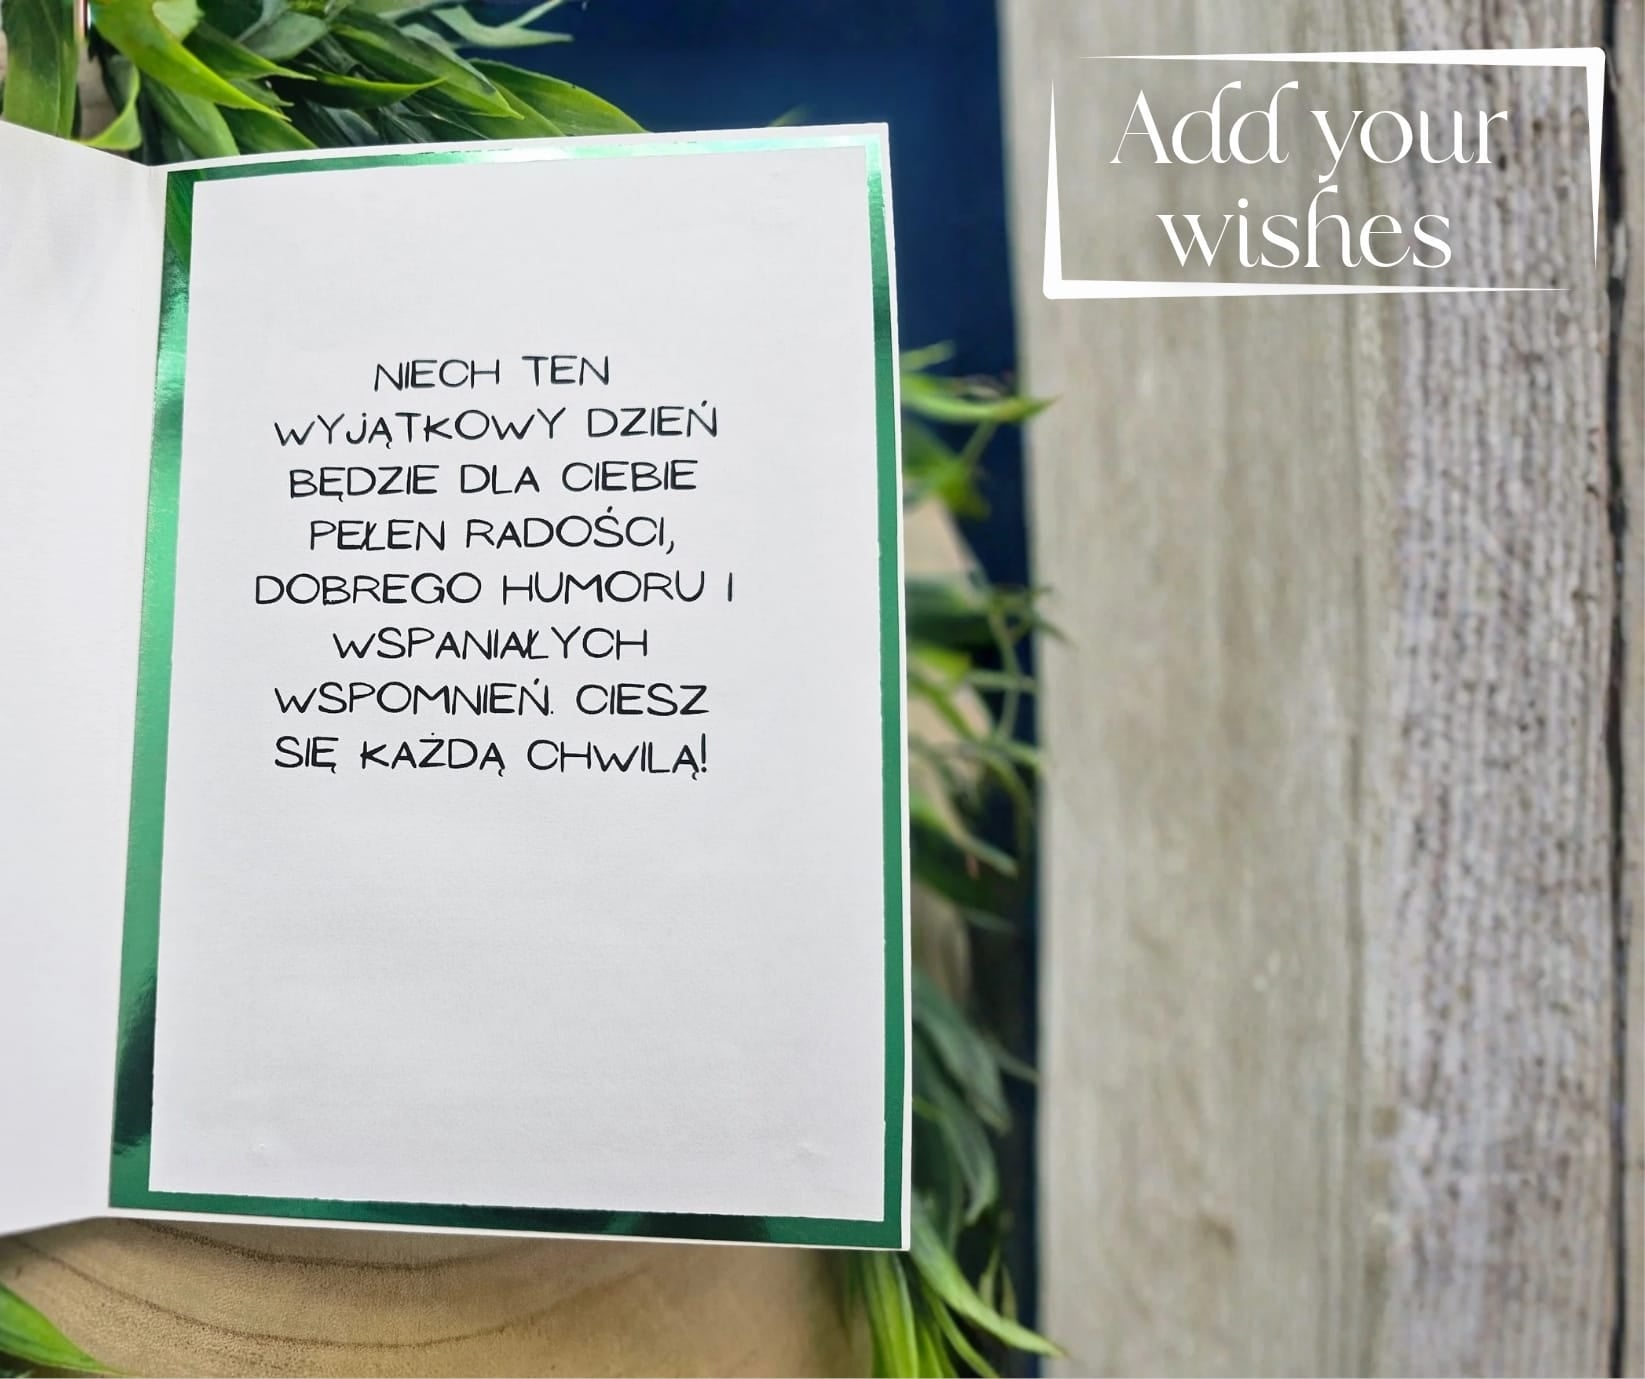 NIECH TEN
WYJĄTKOWY DZIEŃ
BĘDZIE DLA CIEBIE
PEŁEN RADOŚCI,
DOBREGO HUMORU I
WSPANIAŁYCH
WSPOMNIEŃ. CIESZ
SIĘ KAŻDĄ CHWILĄ!
Add your
wishes